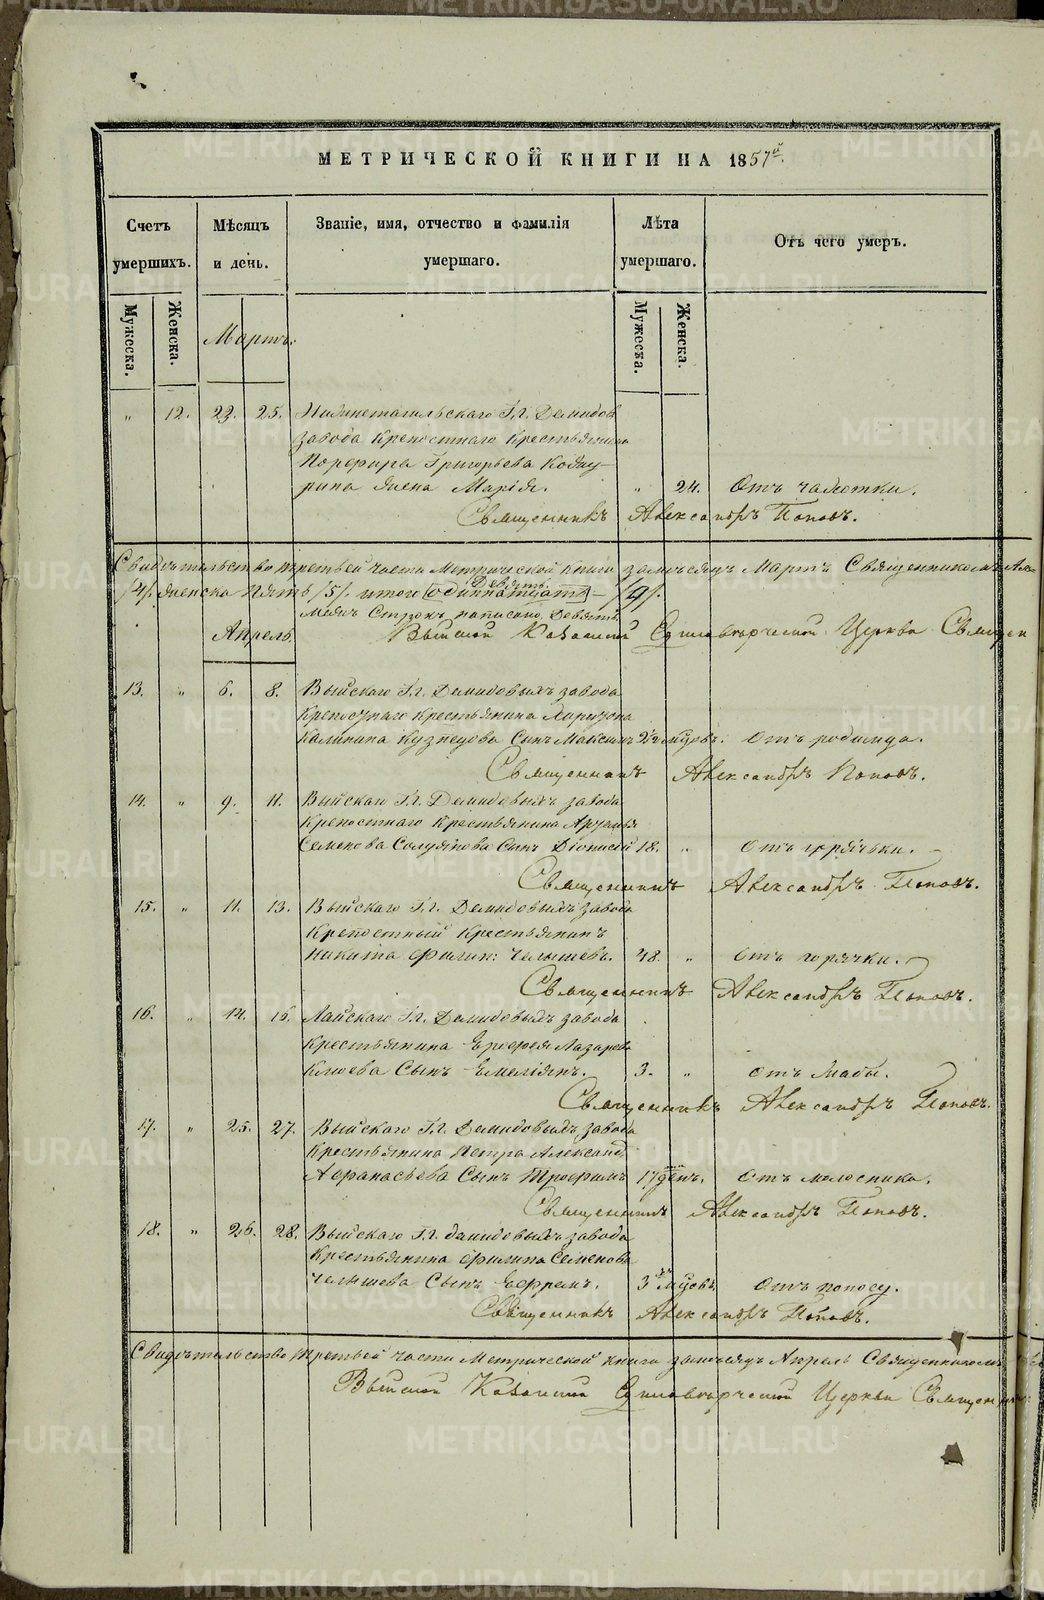 МЕТРИЧЕСКОЙ КНИГИ НА 1857й.
Счетъ умершихъ.
Мѣсяцъ и день.
Званіе, имя, отчество и фамилія умершаго.
Лѣта умершаго.
Отъ чего умеръ.
Мужеска.
Женска.
Мужеска.
Женска.
Мартъ.
„ 12. 23. 25. Нижнетагильскаго Гг. Демидов
завода крепостнаго крестьянина
Порфира Григорьева
жена Марія. „ 24. Отъ чахотки.
Священникъ Александръ Поповъ.
Свидѣтельство третьей части Метрической книги за мѣсяцъ Мартъ Священникомъ
/4/. женска пять /5/. итого одиннатцать Девять /9/.
межъ строкъ написано Девять.
Выйской Казанской Единовѣрческой Церкви Священ
Апрель.
13. „ 6. 8. Выйскаго Гг. Демидовыхъ завода
крепостнаго крестьянина
Калинина Кузнецова сынъ Максимъ 2½ мцовъ. Отъ родимца.
Священникъ Александръ Поповъ.
14. „ 9. 11. Выйскаго Гг. Демидовыхъ завода
крепостнаго крестьянина
Семенова сынъ Діонисій 18. „ Отъ горячки.
Священникъ Александръ Поповъ.
15. „ 11. 13. Выйскаго Гг. Демидовыхъ завода
крепостный крестьянинъ
Никита Филип: Челышевъ. 48. „ Отъ горячки.
Священникъ Александръ Поповъ.
16. „ 14. 16. Лайскаго Гг. Демидовыхъ завода
крестьянина Ерофея Лазарева
Клюева сынъ Емеліянъ. 3. „ Отъ жабы.
Священникъ Александръ Поповъ.
17. „ 25. 27. Выйскаго Гг. Демидовыхъ завода
крестьянина Петра Александ.
Афанасьева сынъ Трофимъ 17 ден. Отъ молосника.
Священникъ Александръ Поповъ.
18. „ 26. 28. Выйскаго Гг. Демидовыхъ завода
крестьянина Филипа Семенова
Челышева сынъ Ефремъ. 3хъ мцовъ. Отъ поносу.
Священникъ Александръ Поповъ.
Свидѣтельство третьей части Метрической книги за мѣсяцъ Апрель Священникомъ
Выйской Казанской Единовѣрческой Церкви Священ
METRIKI.GASO-URAL.RU